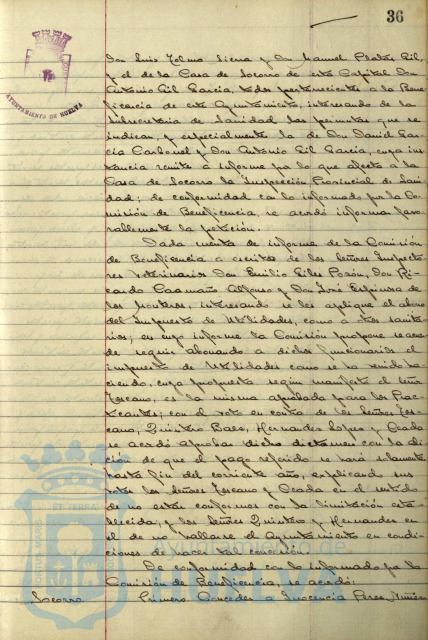 36
AYUNTAMIENTO DE HUELVA
Don Luis Sierra y Don Manuel
y el de la Casa de Socorro de esta Capital Don
Antonio Gil Garcia, todos pertenecientes a la Bene-
ficencia de este Ayuntamiento, interesando de la
Subsecretaria de Sanidad las permutas que se
indican, y especialmente la de Don Daniel Gar-
cia Carbonel y Don Antonio Gil Garcia, cuya ins-
tancia remite a informe por lo que afecta a la
Casa de Socorro la Inspección Provincial de Sani-
dad; de conformidad con lo informado por la Co-
misión de Beneficencia, se acordó informar favo-
rablemente la petición.
Dada cuenta de informe de la Comisión
de Beneficencia a escrito de los Señores Inspecto-
res Veterinarios Don Emilio Giles Don Ri-
cardo Caamaño Alfonso y Don José Espinosa de
los Monteros, interesando se les aplique el abono
del Impuesto de Utilidades, como a otros sanita-
rios; en cuyo informe la Comisión propone se acuer-
de seguir abonando a dichos funcionarios el
impuesto de Utilidades como se ha venido ha-
ciendo, cuya propuesta según manifestó el Señor
Toscano, es la misma aprobada para los Prac-
ticantes; con el voto en contra de los Señores Tos-
cano, Quintero Baez, Hernandez Lopez y Ceada
se acordó aprobar dicho dictamen con la adi-
ción de que el pago referido se hará solamente
hasta fin del corriente año, explicando sus
votos los Señores Toscano y Ceada en el sentido
de no estar conformes con la limitación esta-
blecida, y los Señores Quintero y Hernandez en
el de no hallarse el Ayuntamiento en condi-
ciones de hacer tal concesión.
De conformidad con lo informado por la
Comisión de Beneficencia, se acordó:
Socorro Primero Conceder a Inocencia Perez